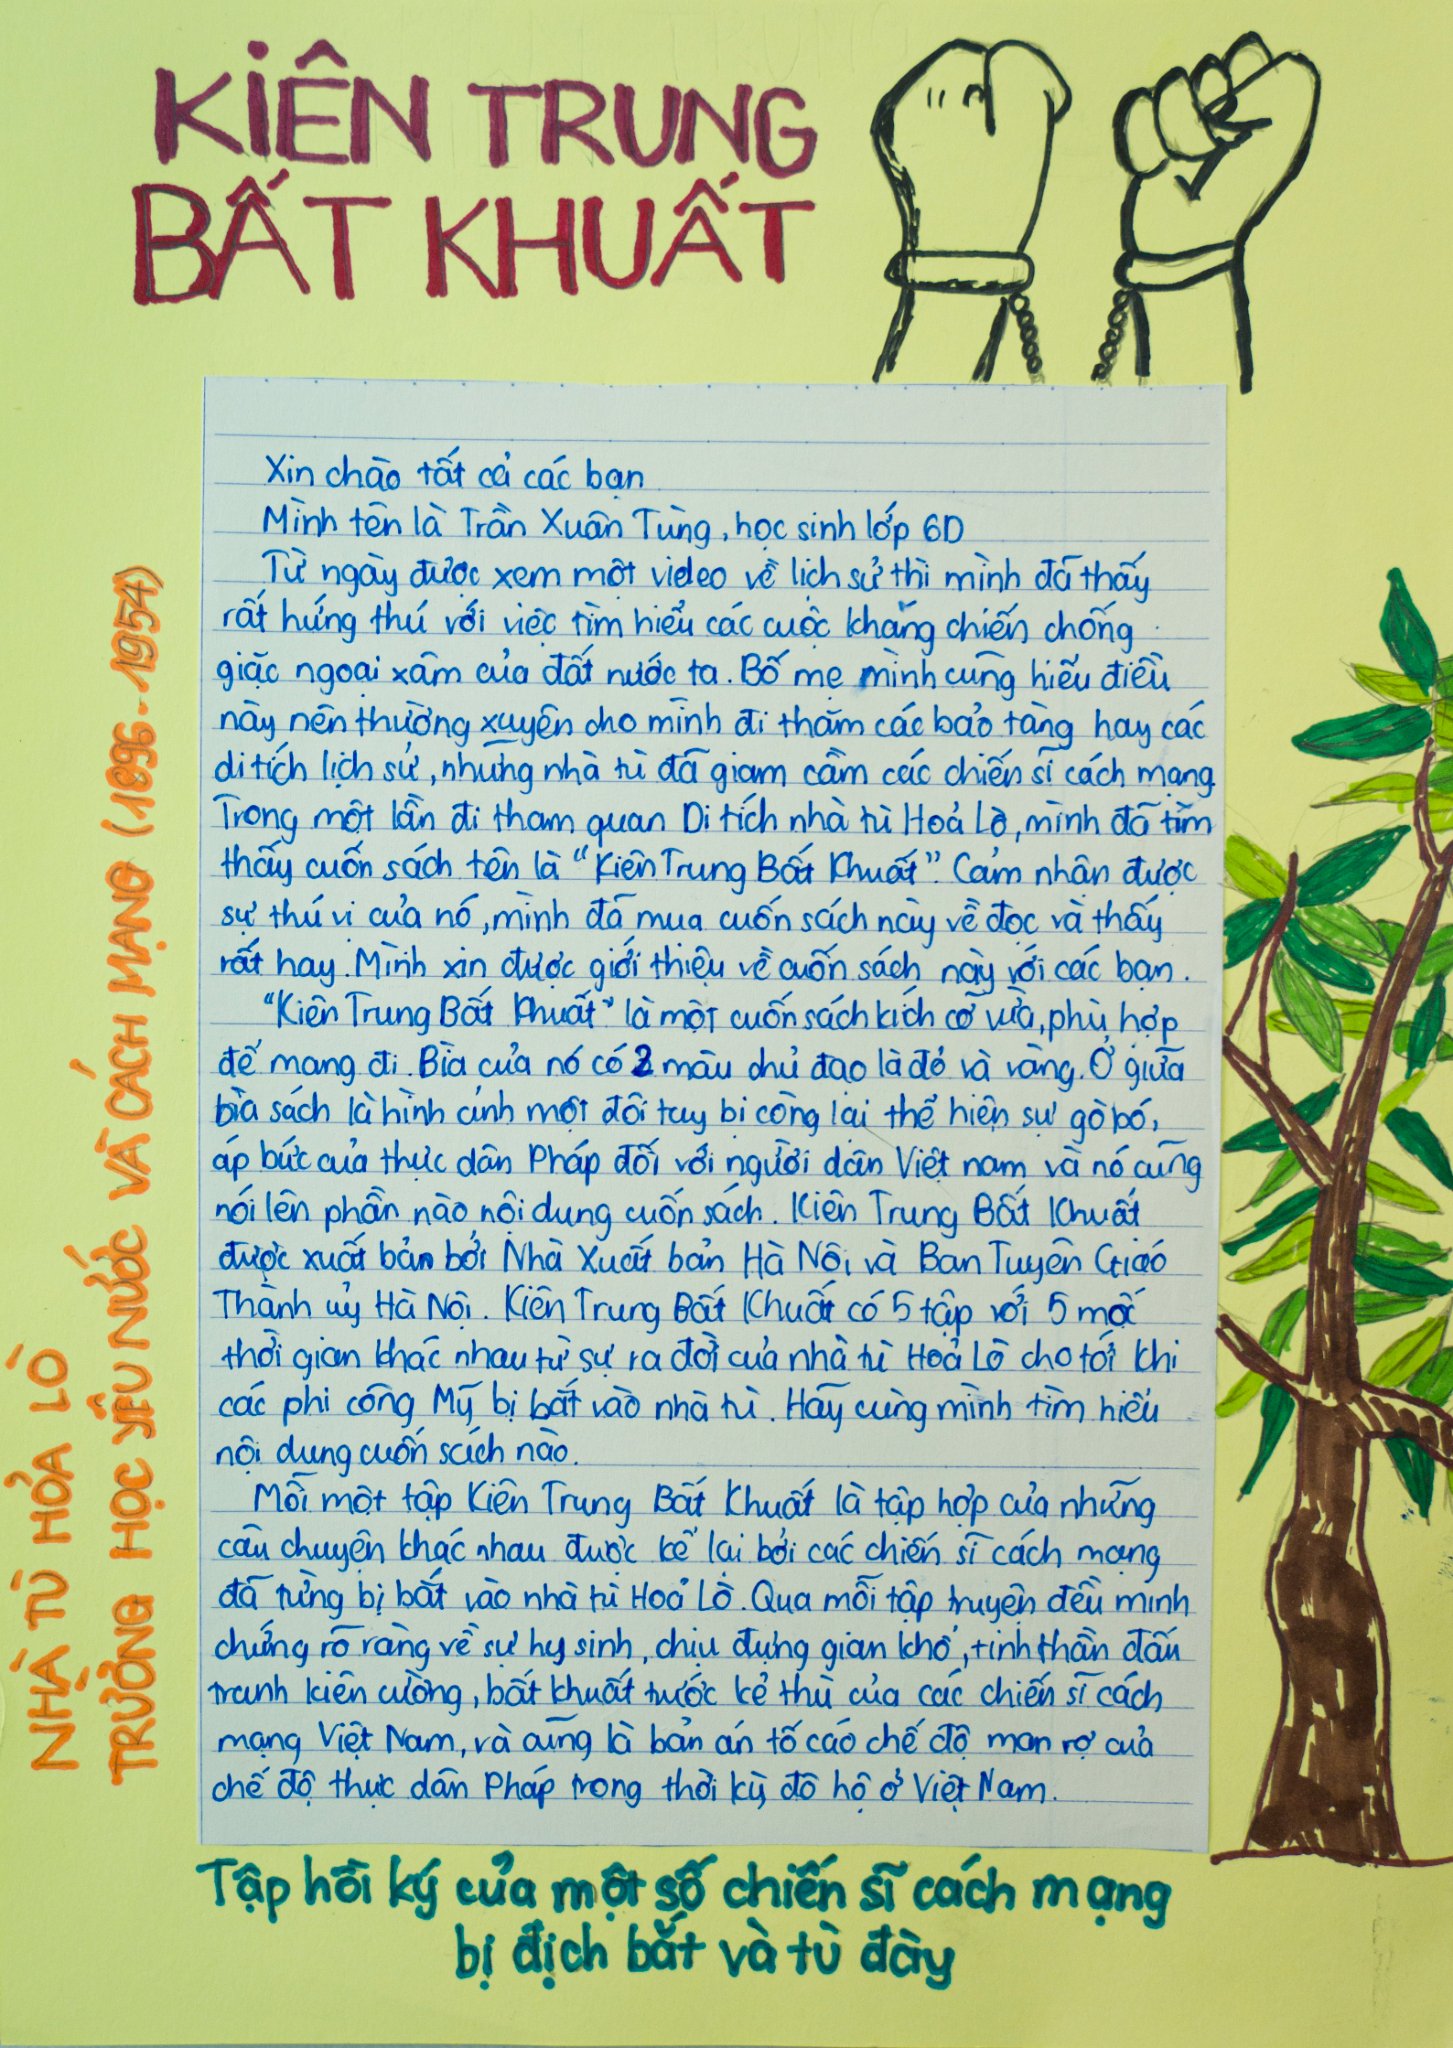 KIÊN TRUNG
BẤT KHUẤT
Xin chào tất cả các bạn
Mình tên là Trần Xuân Tùng, học sinh lớp 6D
Từ ngày được xem một video về lịch sử thì mình đã thấy
rất hứng thú với việc tìm hiểu các cuộc kháng chiến chống
giặc ngoại xâm của đất nước ta. Bố mẹ mình cũng hiểu điều
này nên thường xuyên cho mình đi thăm các bảo tàng hay các
di tích lịch sử, những nhà tù đã giam cầm các chiến sĩ cách mạng.
Trong một lần đi tham quan Di tích nhà tù Hoả Lò, mình đã tìm
thấy cuốn sách tên là "Kiên Trung Bất Khuất". Cảm nhận được
sự thú vị của nó, mình đã mua cuốn sách này về đọc và thấy
rất hay. Mình xin được giới thiệu về cuốn sách này với các bạn.
"Kiên Trung Bất Khuất" là một cuốn sách kích cỡ vừa, phù hợp
để mang đi. Bìa của nó có 2 màu chủ đạo là đỏ và vàng. Ở giữa
bìa sách là hình ảnh một đôi tay bị còng lại thể hiện sự gò bó,
áp bức của thực dân Pháp đối với người dân Việt nam và nó cũng
nói lên phần nào nội dung cuốn sách. Kiên Trung Bất Khuất
được xuất bản bởi Nhà Xuất bản Hà Nội và Ban Tuyên Giáo
Thành uỷ Hà Nội. Kiên Trung Bất Khuất có 5 tập với 5 mốc
thời gian khác nhau từ sự ra đời của nhà tù Hoả Lò cho tới khi
các phi công Mỹ bị bắt vào nhà tù. Hãy cùng mình tìm hiểu
nội dung cuốn sách nào.
Mỗi một tập Kiên Trung Bất Khuất là tập hợp của những
câu chuyện khác nhau được kể lại bởi các chiến sĩ cách mạng
đã từng bị bắt vào nhà tù Hoả Lò. Qua mỗi tập truyện đều minh
chứng rõ ràng về sự hy sinh, chịu đựng gian khổ, tinh thần đấu
tranh kiên cường, bất khuất trước kẻ thù của các chiến sĩ cách
mạng Việt Nam, và cũng là bản án tố cáo chế độ man rợ của
chế độ thực dân Pháp trong thời kỳ đô hộ ở Việt Nam.
NHÀ TÙ HỎA LÒ
TRƯỜNG HỌC YÊU NƯỚC VÀ CÁCH MẠNG (1896-1954)
Tập hồi ký của một số chiến sĩ cách mạng
bị địch bắt và tù đày